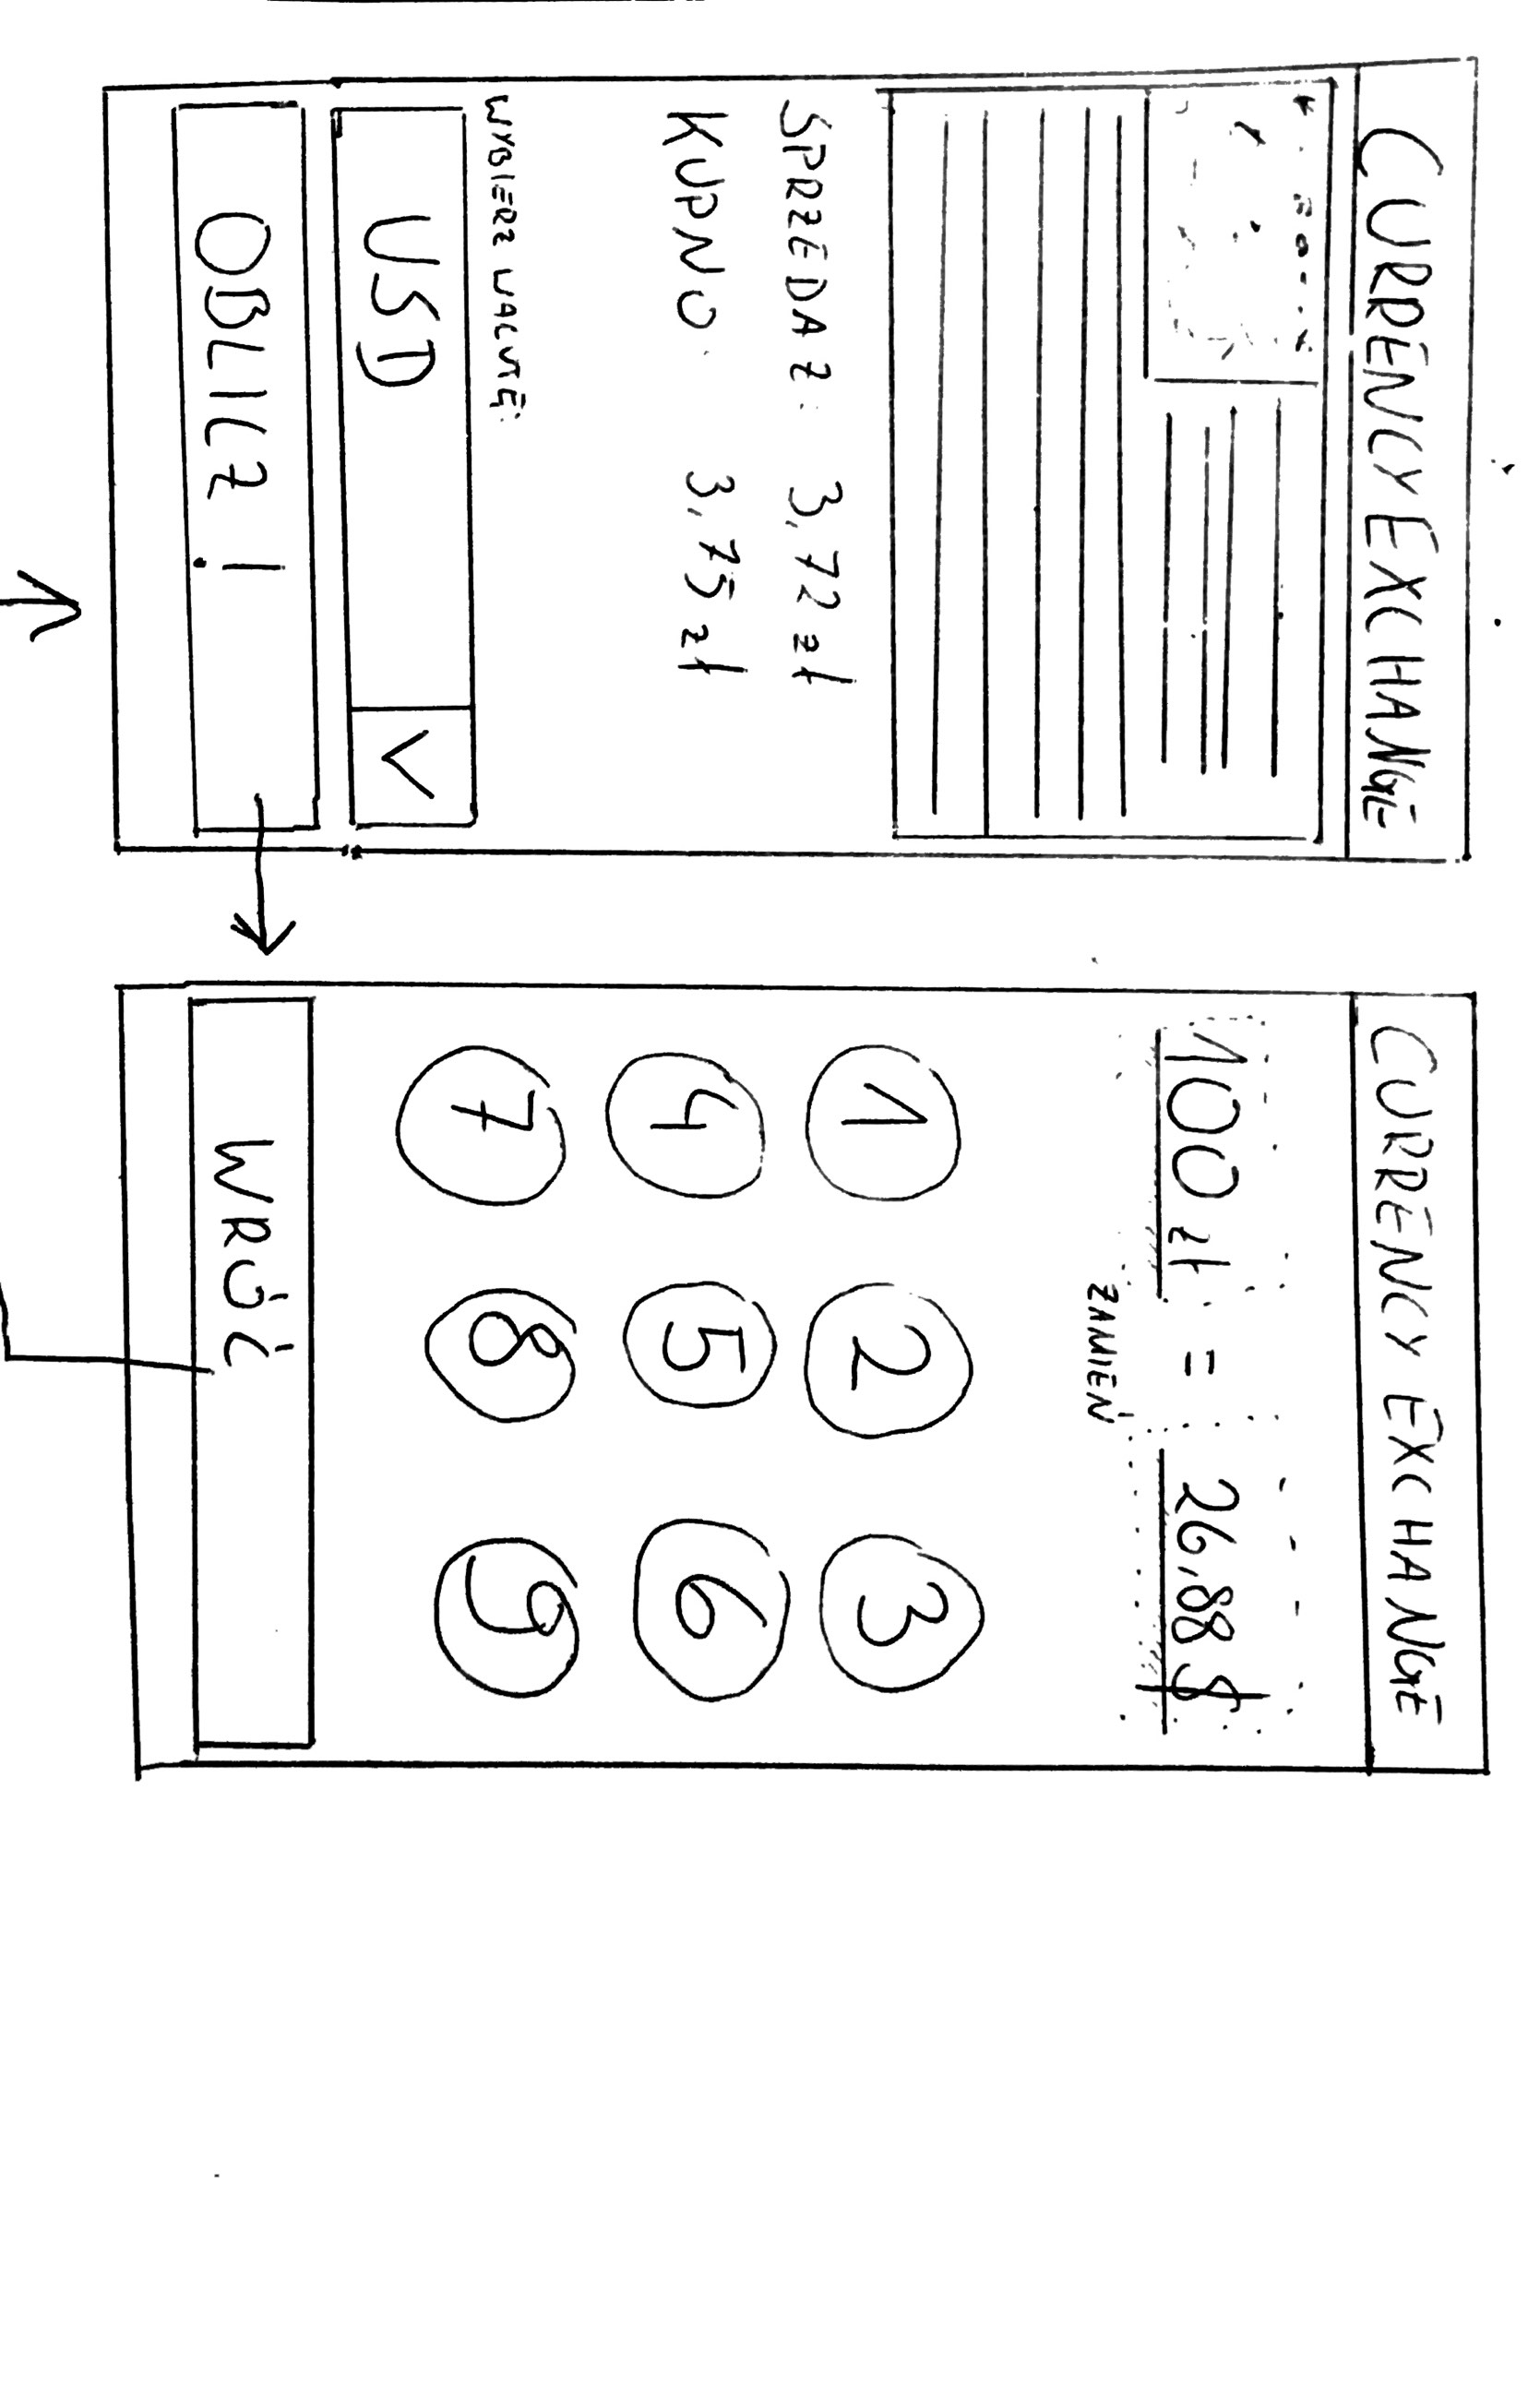 CURRENCY EXCHANGE
SPRZEDAZ: 3,72 zł
KUPNO: 3,75 zł
WYBIERZ WALUTĘ:
USD
OBLICZ!
CURRENCY EXCHANGE
100 zł = 26,88 $
ZAMIEŃ
1 2 3
4 5 6
7 8 9
WRÓĆ